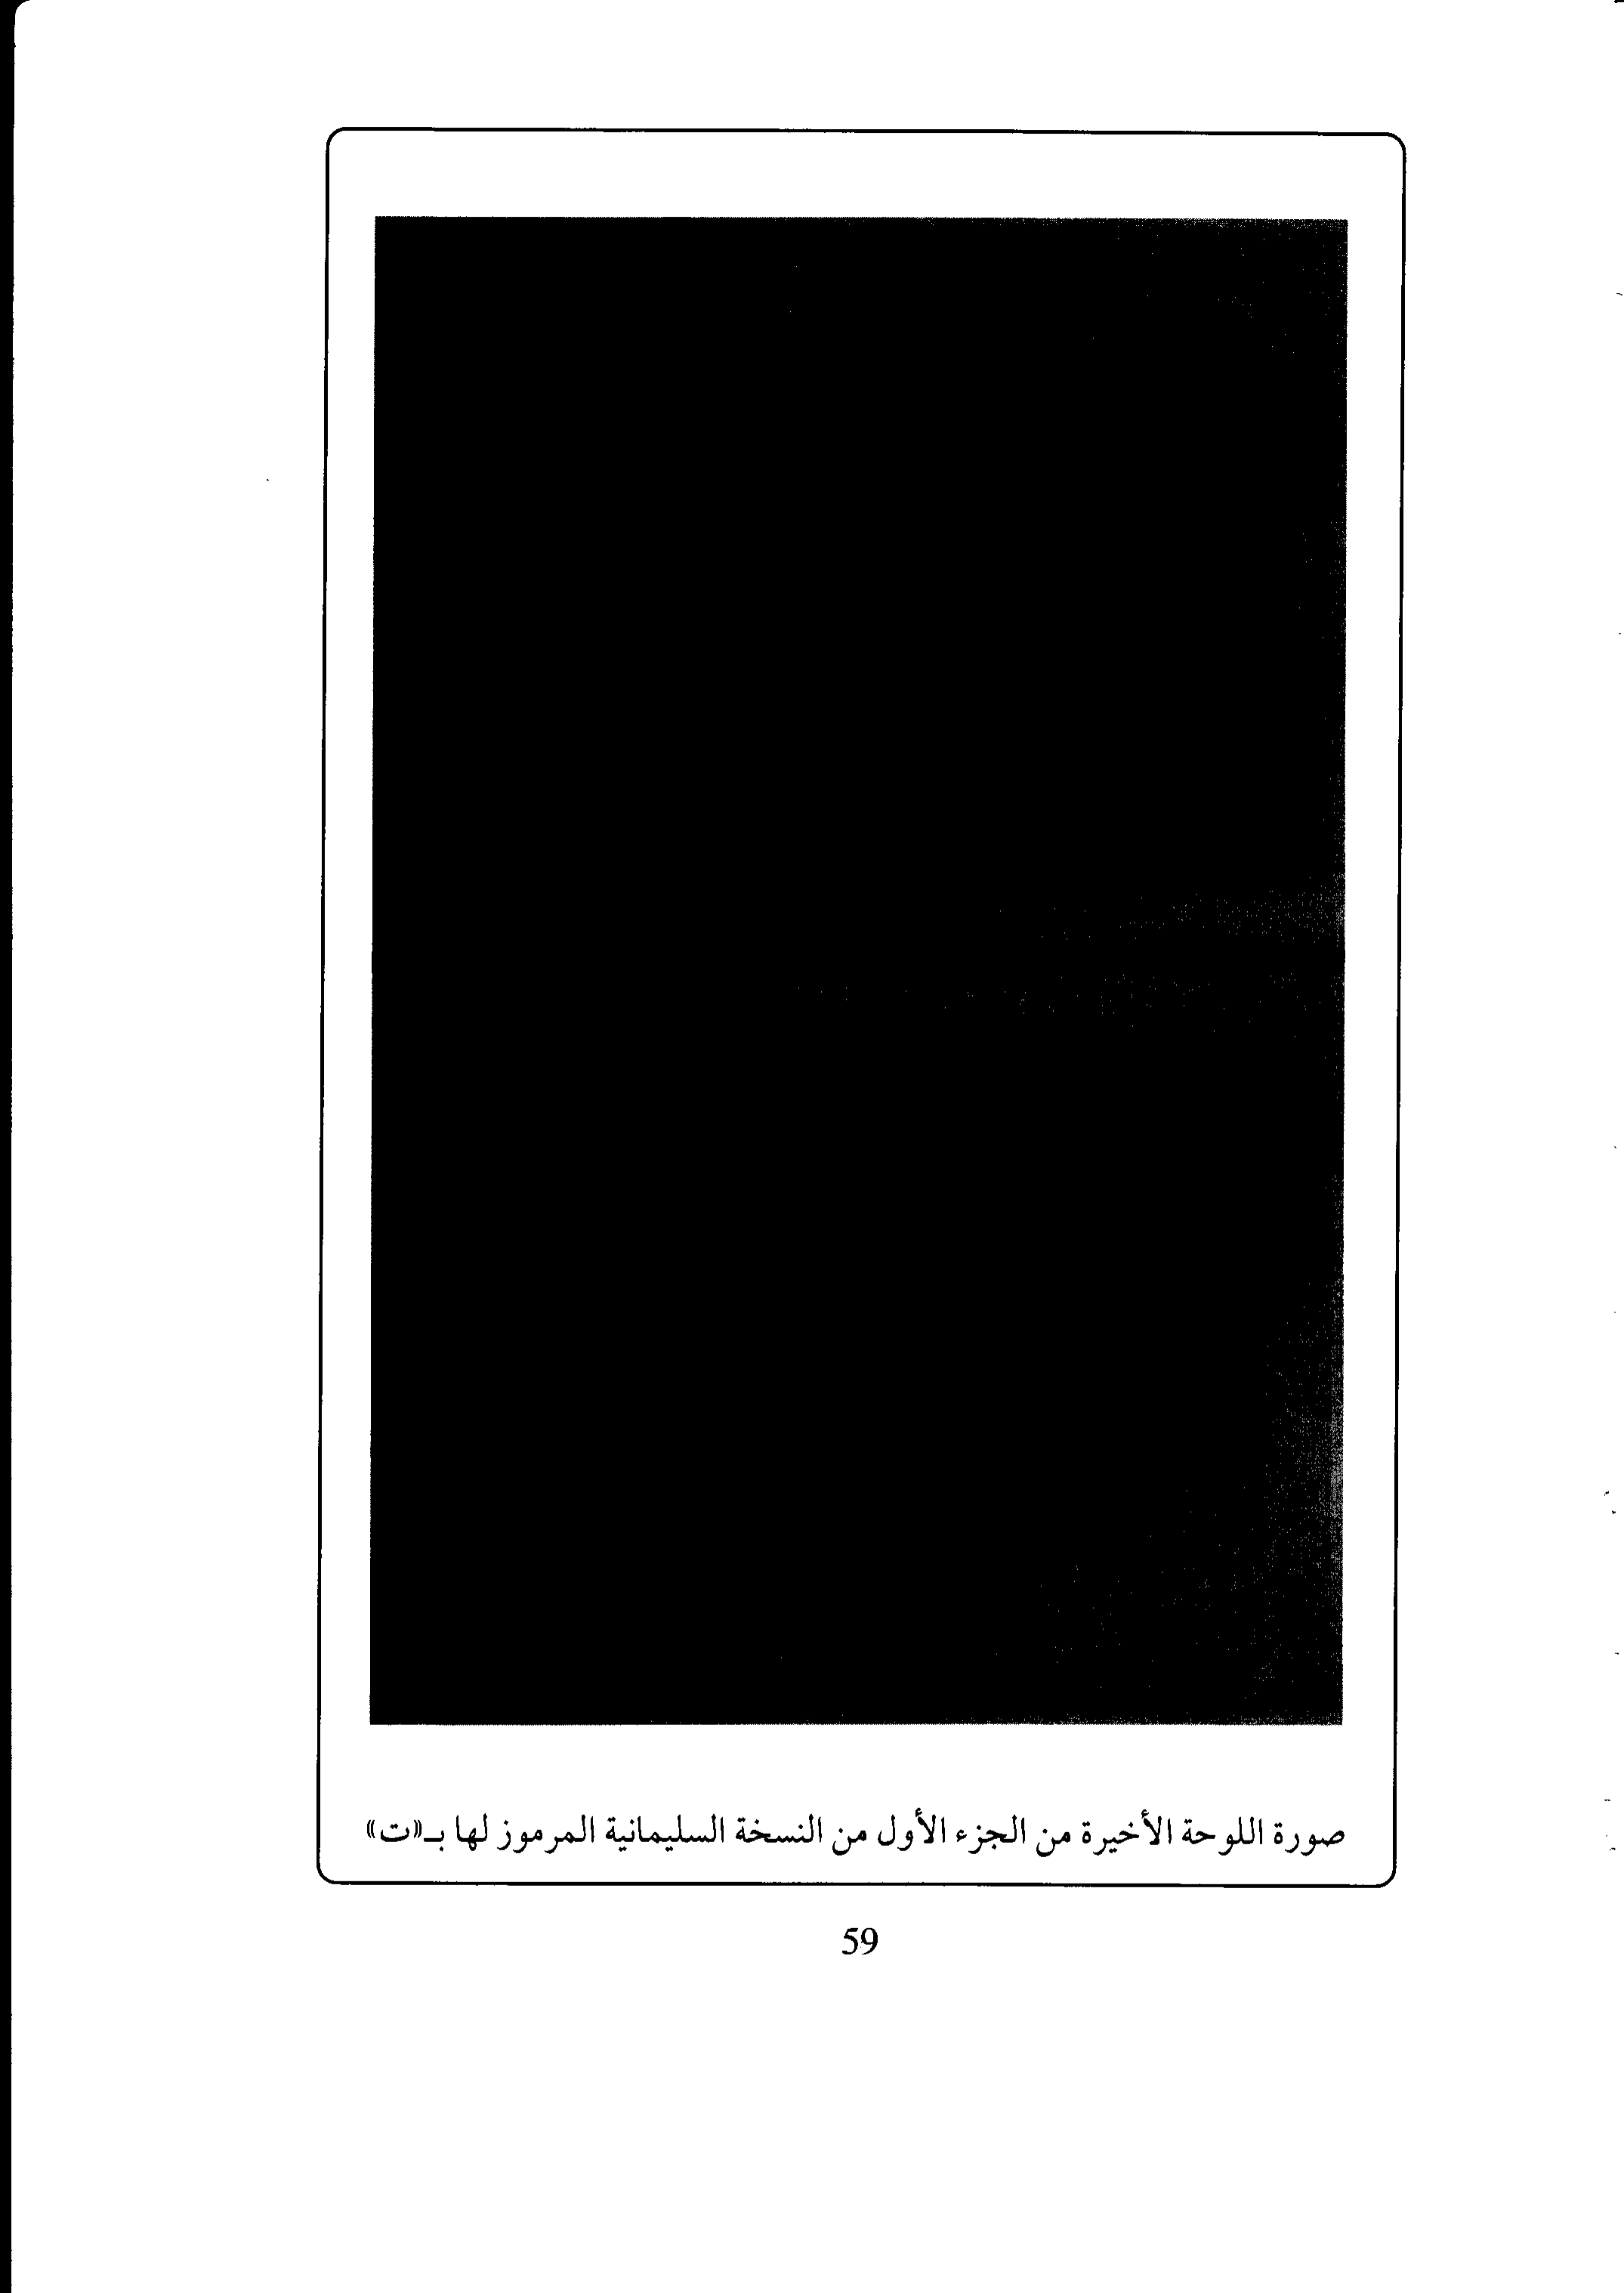 صورة اللوحة الأخيرة من الجزء الأول من النسخة السليمانية المرموز لها بـ«ت»
59